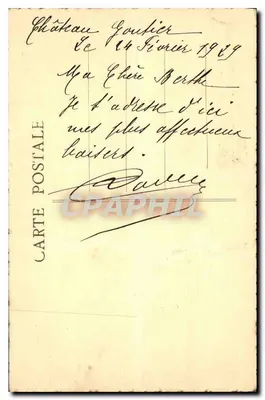 Château Gontier
Le 24 Février 1919
Ma Chère Berthe
Je t'adresse d'ici
mes plus affectueux
baisers.
CARTE POSTALE
CPAPHIL